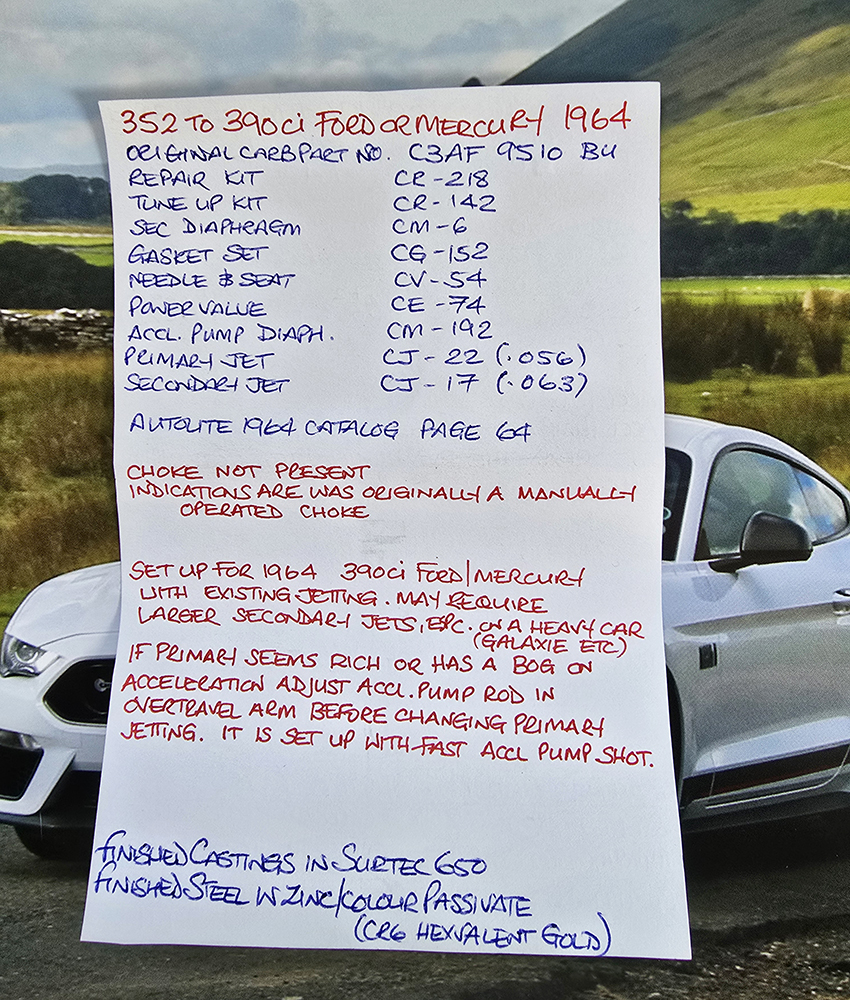 352 TO 390ci FORD OR MERCURY 1964
ORIGINAL CARB PART NO. C3AF 9510 BU
REPAIR KIT CR-218
TUNE UP KIT CR-142
SEC DIAPHRAGM CM-6
GASKET SET CG-152
NEEDLE & SEAT CV-54
POWER VALUE CE-74
ACCL. PUMP DIAPH. CM-192
PRIMARY JET CJ-22 (.056)
SECONDARY JET CJ-17 (.063)
AUTOLITE 1964 CATALOG PAGE 64
CHOKE NOT PRESENT
INDICATIONS ARE WAS ORIGINALLY A MANUALLY
OPERATED CHOKE
SET UP FOR 1964 390ci FORD/MERCURY
WITH EXISTING JETTING. MAY REQUIRE
LARGER SECONDARY JETS, EPC. ON A HEAVY CAR
(GALAXIE ETC)
IF PRIMARY SEEMS RICH OR HAS A BOG ON
ACCELERATION ADJUST ACCL. PUMP ROD IN
OVERTRAVEL ARM BEFORE CHANGING PRIMARY
JETTING. IT IS SET UP WITH FAST ACCL PUMP SHOT.
FINISHED CASTINGS IN SURTEC 650
FINISHED STEEL IN ZINC/COLOUR PASSIVATE
(CR6 HEXVALENT GOLD)